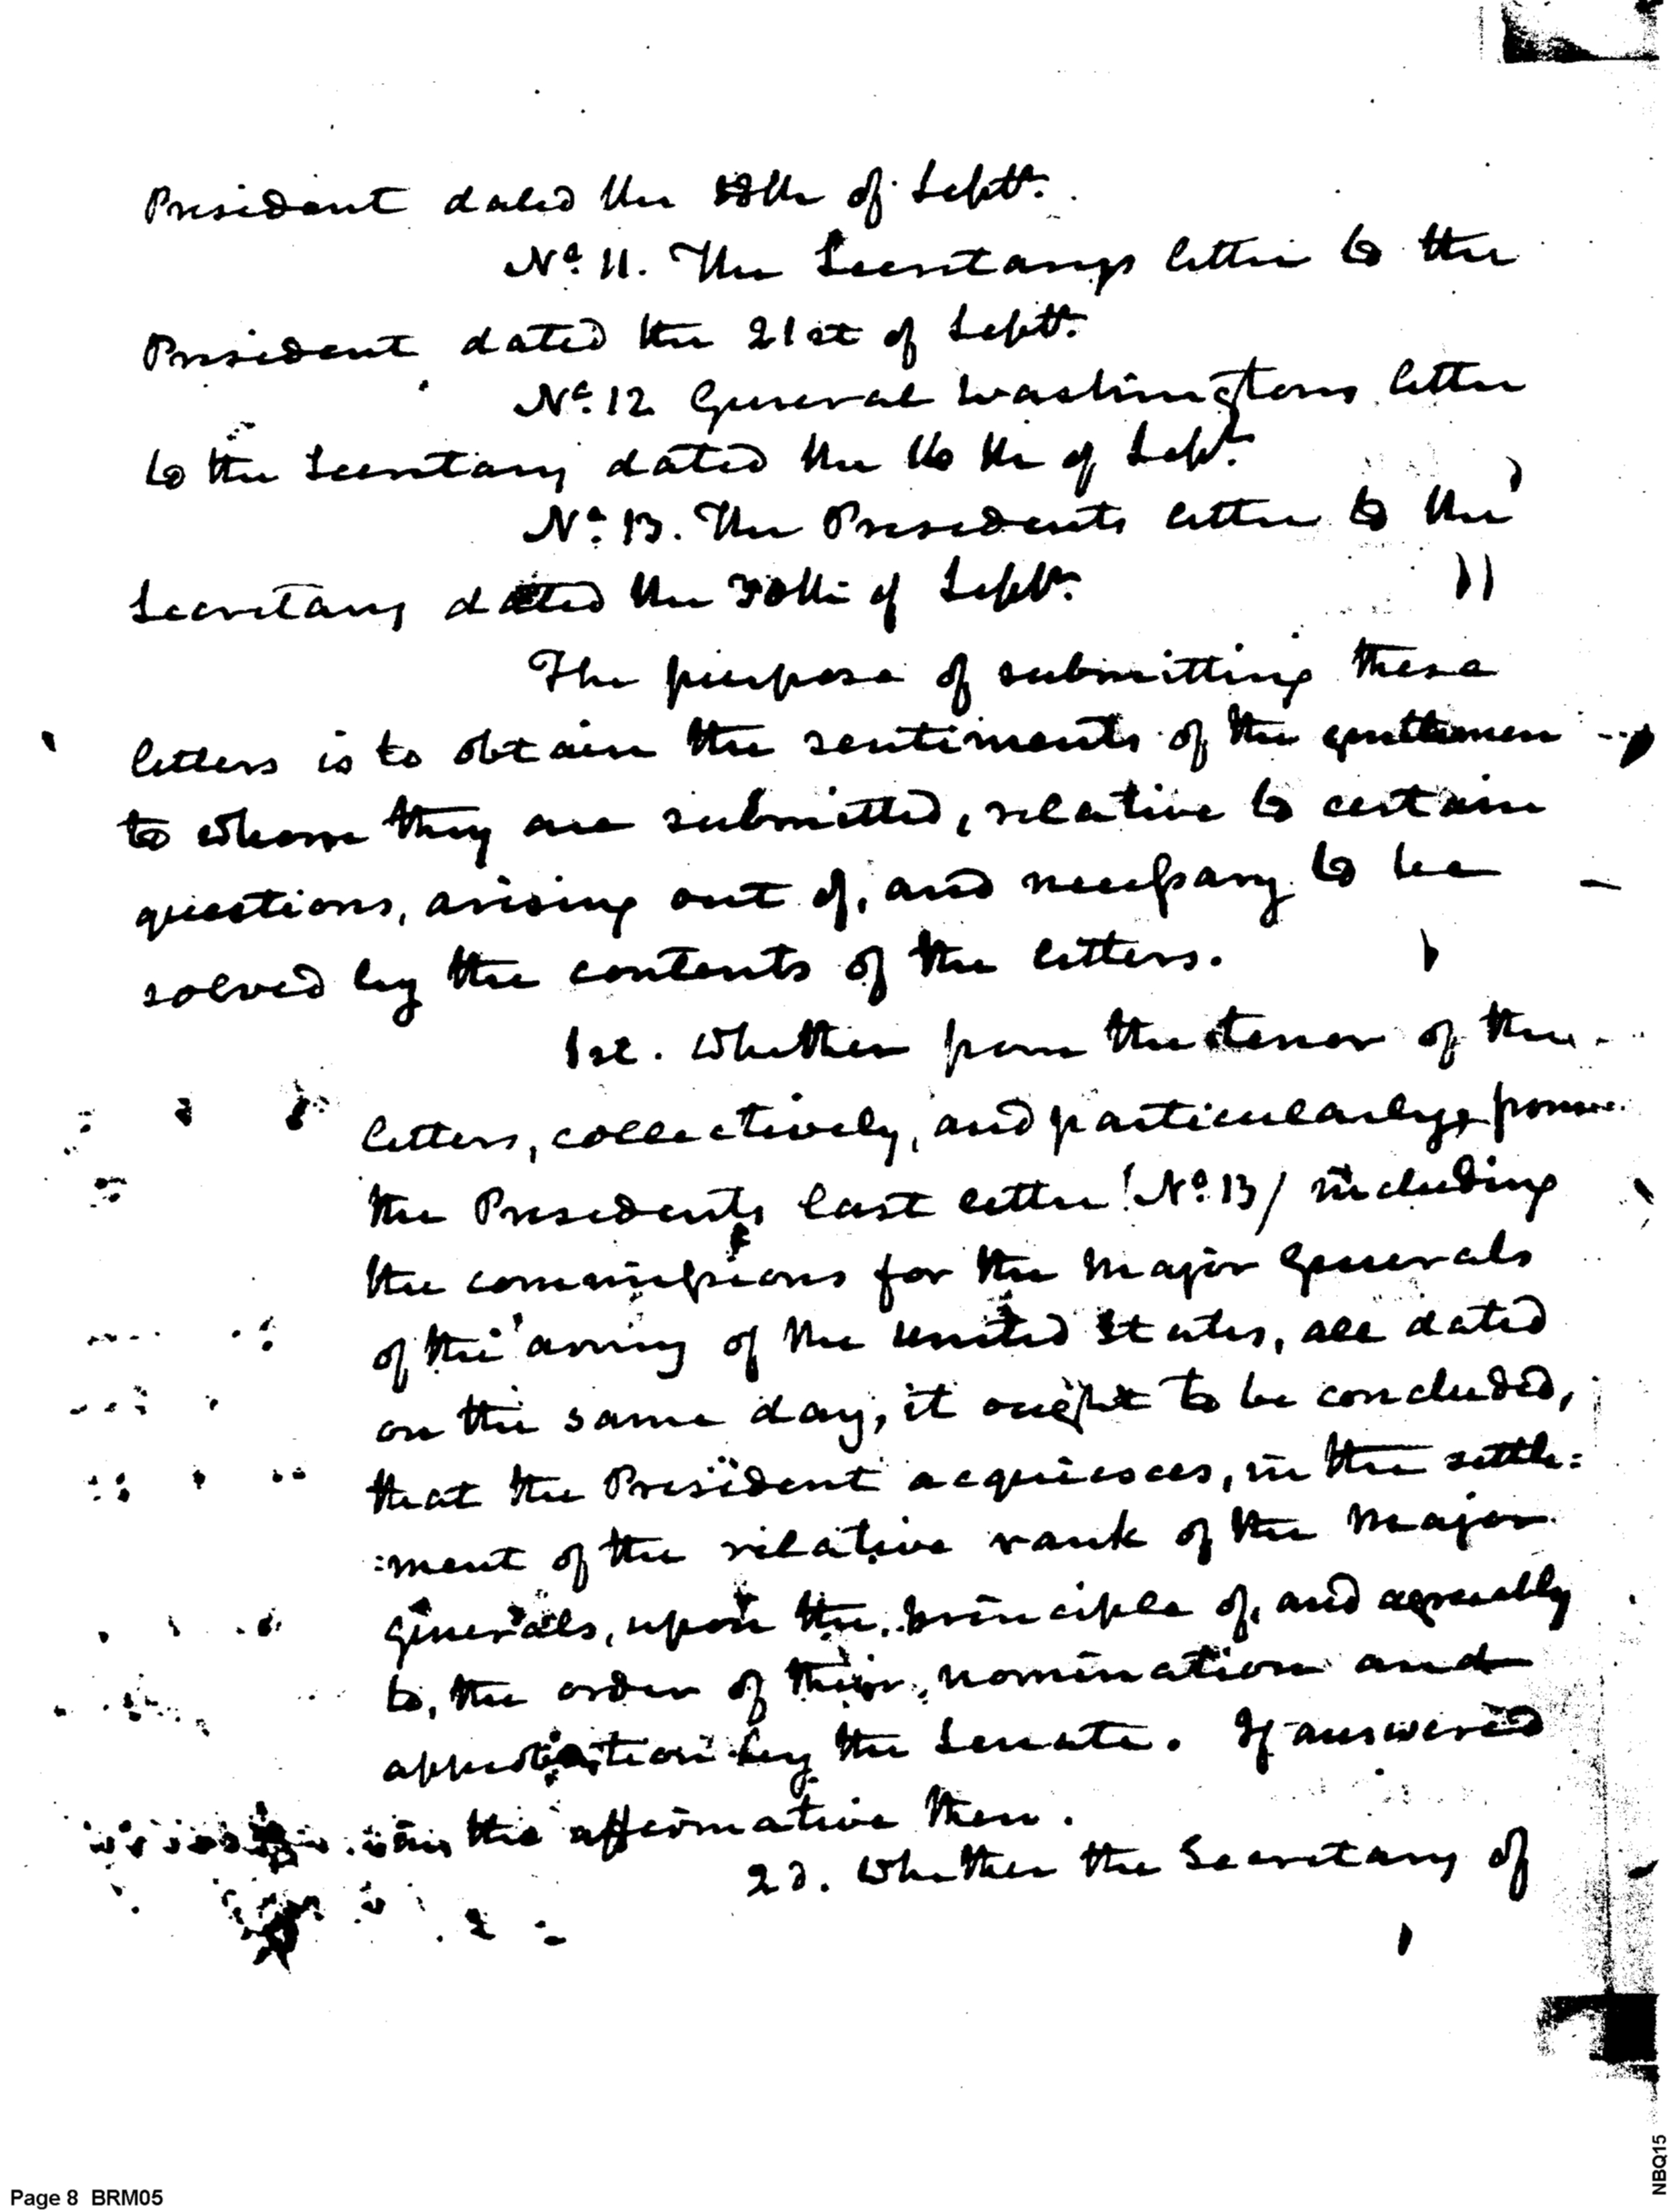 President dated the 18th of Septr.
No. 11. The Secretarys letter to the
President dated the 21st of Septr.
No. 12 General Washingtons letter
to the Secretary dated the 16th of Sepr.
No. 13. The Presidents letter to the
Secretary dated the 30th of Septr.
The purpose of submitting these
letters is to obtain the sentiments of the gentlemen
to whom they are submitted, relative to certain
questions, arising out of, and necessary to be
solved by the contents of the letters.
1st. Whether from the tenor of the
letters, collectively, and particularly, from
the Presidents last letter /No. 13/ including
the commissions for the Major Generals
of the army of the United States, all dated
on the same day, it ought to be concluded,
that the President acquiesces, in the settle=
=ment of the relative rank of the Major
generals, upon the principle of, and agreeably
to, the order of their, nomination and
approbation by the Senate. If answered
in the affirmative then.
2d. Whether the Secretary of
Page 8 BRM05
NBQ15